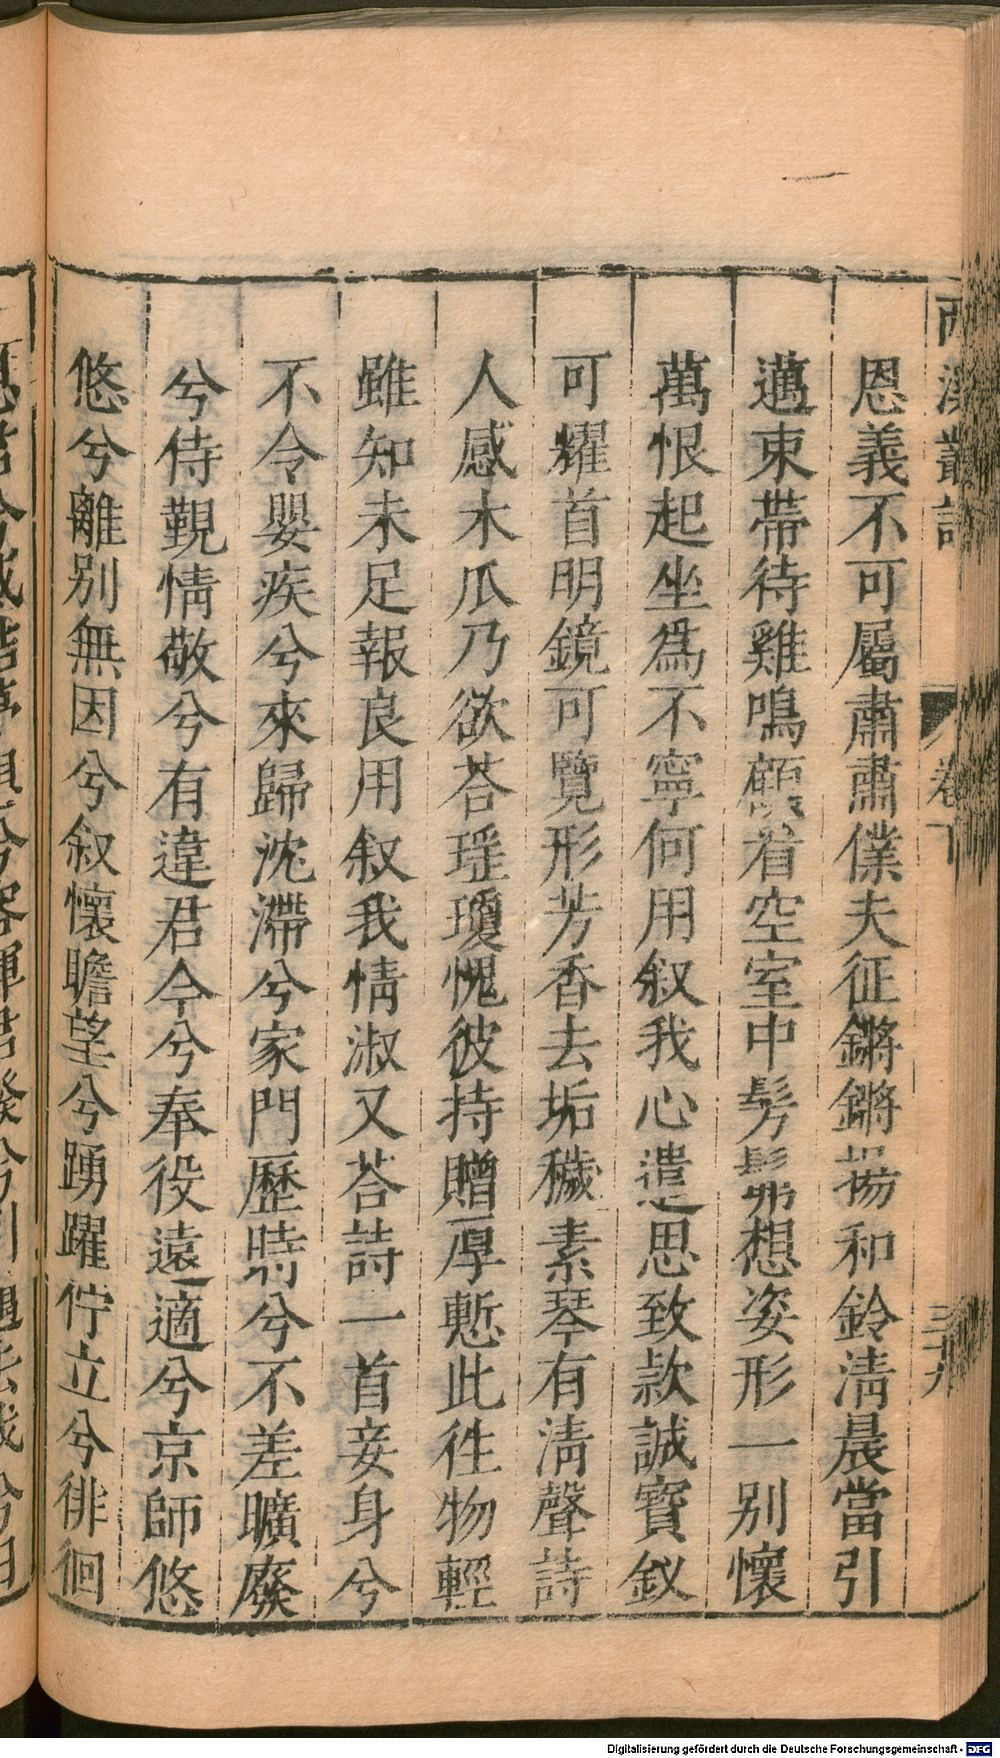 恩義不可屬肅肅僕夫征鏘鏘揚和鈴淸晨當引
邁束帶待雞鳴顧看空室中髣髴想姿形一别懷
萬恨起坐爲不寧何用叙我心遣思致款誠寳釵
可耀首明鏡可覽形芳香去垢穢素琴有淸聲詩
人感木瓜乃欲荅瑶瓊愧彼持贈厚慙此徃物輕
雖知未足報良用叙我情淑又荅詩一首妾身兮
不令嬰疾兮來歸沈滯兮家門歷時兮不差曠廢
兮侍覲情敬兮有違君今兮奉役遠適兮京師悠
悠兮離别無因兮叙懷瞻望兮踴躍佇立兮徘徊
卷下
Digitalisierung gefördert durch die Deutsche Forschungsgemeinschaft - DFG